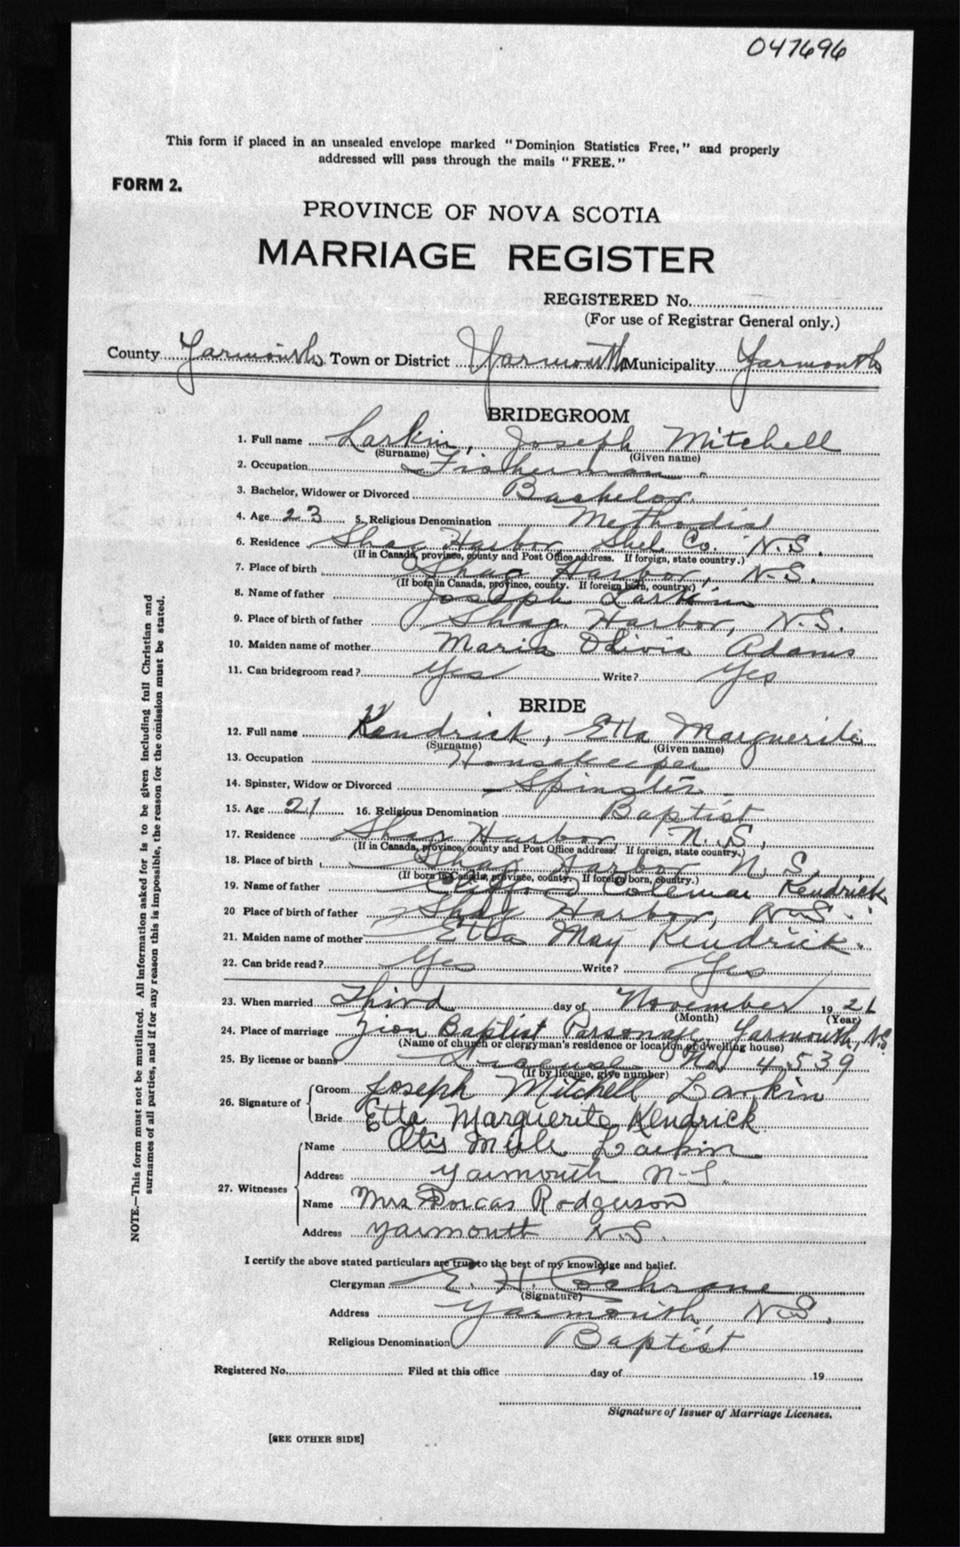 047696
This form if placed in an unsealed envelope marked "Dominion Statistics Free," and properly
addressed will pass through the mails "FREE."
FORM 2.
PROVINCE OF NOVA SCOTIA
MARRIAGE REGISTER
REGISTERED No.
(For use of Registrar General only.)
County Yarmouth Town or District Yarmouth Municipality Yarmouth
BRIDEGROOM
1. Full name Larkin, Joseph Mitchell
(Surname) (Given name)
2. Occupation Fisherman
3. Bachelor, Widower or Divorced Bachelor
4. Age 23 5. Religious Denomination Methodist
6. Residence Shag Harbor Shel. Co. N.S.
(If in Canada, province, county and Post Office address. If foreign, state country.)
7. Place of birth Shag Harbor, N.S.
(If born in Canada, province, county. If foreign born, country.)
8. Name of father Joseph Larkin
9. Place of birth of father Shag Harbor, N.S.
10. Maiden name of mother Maria Olivia Adams
11. Can bridegroom read? Yes Write? Yes
BRIDE
12. Full name Kendrick, Etta Marguerite
(Surname) (Given name)
13. Occupation Housekeeper
14. Spinster, Widow or Divorced Spinster
15. Age 21 16. Religious Denomination Baptist
17. Residence Shag Harbor N.S.,
(If in Canada, province, county and Post Office address. If foreign, state country.)
18. Place of birth Shag Harbor N.S.
(If born in Canada, province, county. If foreign born, country.)
19. Name of father Clifford Coleman Kendrick
20 Place of birth of father Shag Harbor, N.S.
21. Maiden name of mother Etta May Kendrick.
22. Can bride read? Yes Write? Yes
23. When married Third day of November 1921
(Month) (Year)
24. Place of marriage Zion Baptist Parsonage, Yarmouth, N.S.
(Name of church or clergyman's residence or location of dwelling house)
25. By license or banns License No. 4539
(If by license, give number)
26. Signature of Groom Joseph Mitchell Larkin
Bride Etta Marguerite Kendrick
27. Witnesses Name Otis Larkin
Address Yarmouth N.S.
Name Mrs Dorcas Rodgerson
Address Yarmouth N.S.
I certify the above stated particulars are true to the best of my knowledge and belief.
Clergyman E. H. Cochrane
(Signature)
Address Yarmouth, N.S.,
Religious Denomination Baptist
Registered No. Filed at this office day of 19
Signature of Issuer of Marriage Licenses.
[SEE OTHER SIDE]
NOTE.—This form must not be mutilated. All information asked for is to be given including full Christian and
surnames of all parties, and if for any reason this is impossible, the reason for the omission must be stated.